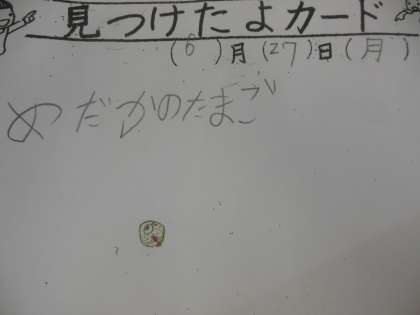 見つけたよカード
(6)月(27)日(月)
めだかのたまご